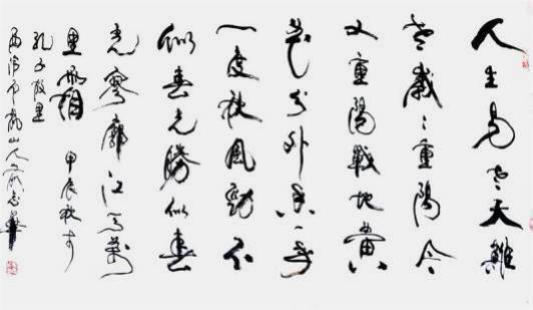 人生易老天難
老歲々重陽今
又重陽戰地黃
花分外香一年
一度秋風勁不
似春光勝似春
光寥廓江天萬
里霜 甲辰秋于
孔子故里
山人